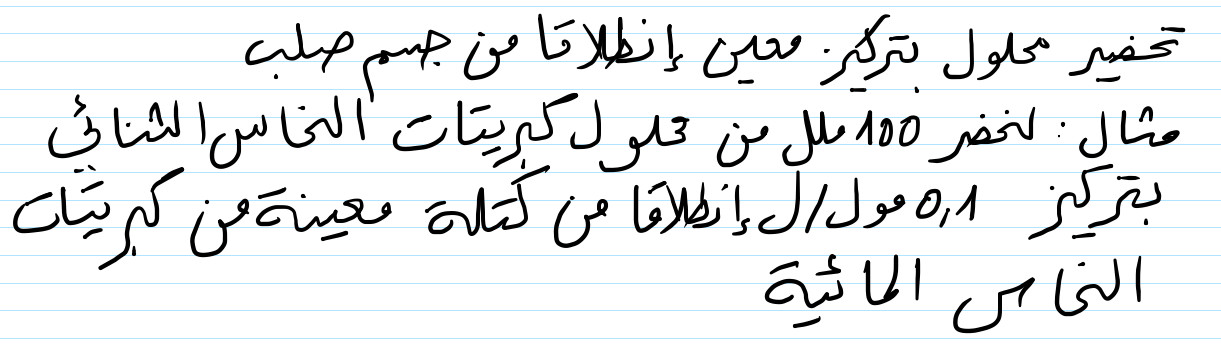 تحضير محلول بتركيز معين إنطلاقا من جسم صلب
مثال : لنحضر 100 ملل من محلول كبريتات النحاس الثنائي
بتركيز 0,1 مول/ل إنطلاقا من كتلة معينة من كبريتات
النحاس المائية